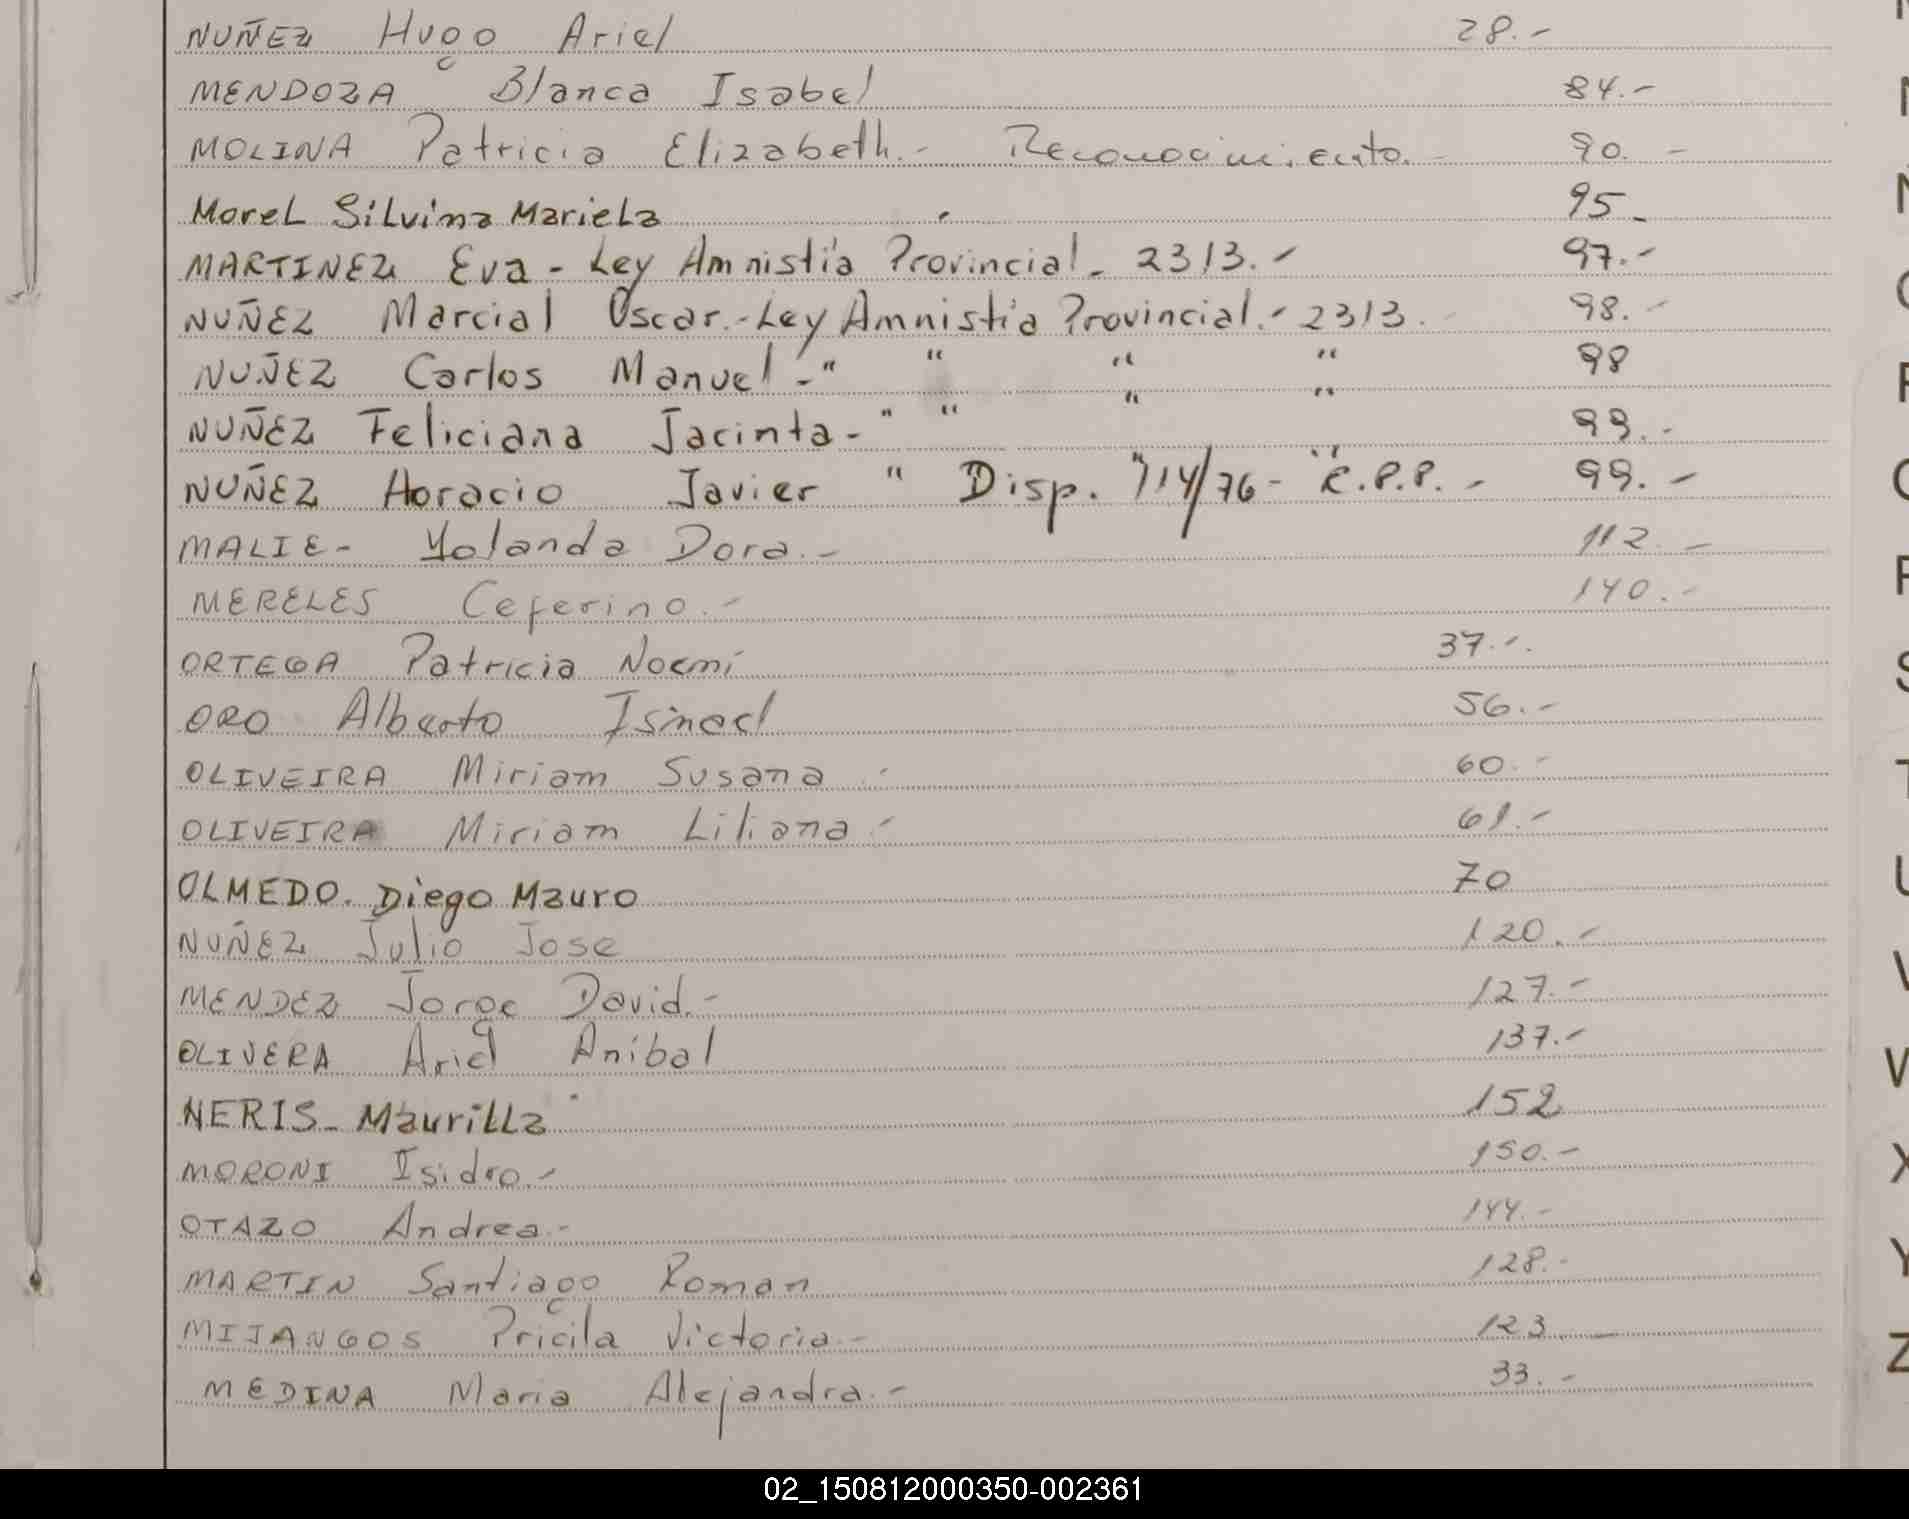 NUÑEZ Hugo Ariel 28.-
MENDOZA Blanca Isabel 84.-
MOLINA Patricia Elizabeth.- Reconocimiento.- 90.-
Morel Silvina Mariela 95-
MARTINEZ Eva - Ley Amnistía Provincial - 2313.- 97.-
NUÑEZ Marcial Oscar.- Ley Amnistía Provincial.- 2313.- 98.-
NUÑEZ Carlos Manuel -" " " " 98
NUÑEZ Feliciana Jacinta -" " " " 99.-
NUÑEZ Horacio Javier " Disp. 714/76 - R.P.P. - 99.-
MALIE - Yolanda Dora.- 112.-
MERELES Ceferino.- 140.-
ORTEGA Patricia Noemí 37.-
ORO Alberto Ismael 56.-
OLIVEIRA Miriam Susana.- 60.-
OLIVEIRA Miriam Liliana.- 61.-
OLMEDO. Diego Mauro 70
NUÑEZ Julio Jose 120.-
MENDEZ Jorge David.- 127.-
OLIVERA Ariel Anibal 137.-
NERIS - Maurilla 152
MORONI Isidro.- 150.-
OTAZO Andrea.- 144.-
MARTIN Santiago Roman 128.-
MIJANGOS Pricila Victoria.- 123 -
MEDINA Maria Alejandra.- 33.-
O
P
Q
R
S
T
U
V
W
X
Y
Z
02_150812000350-002361